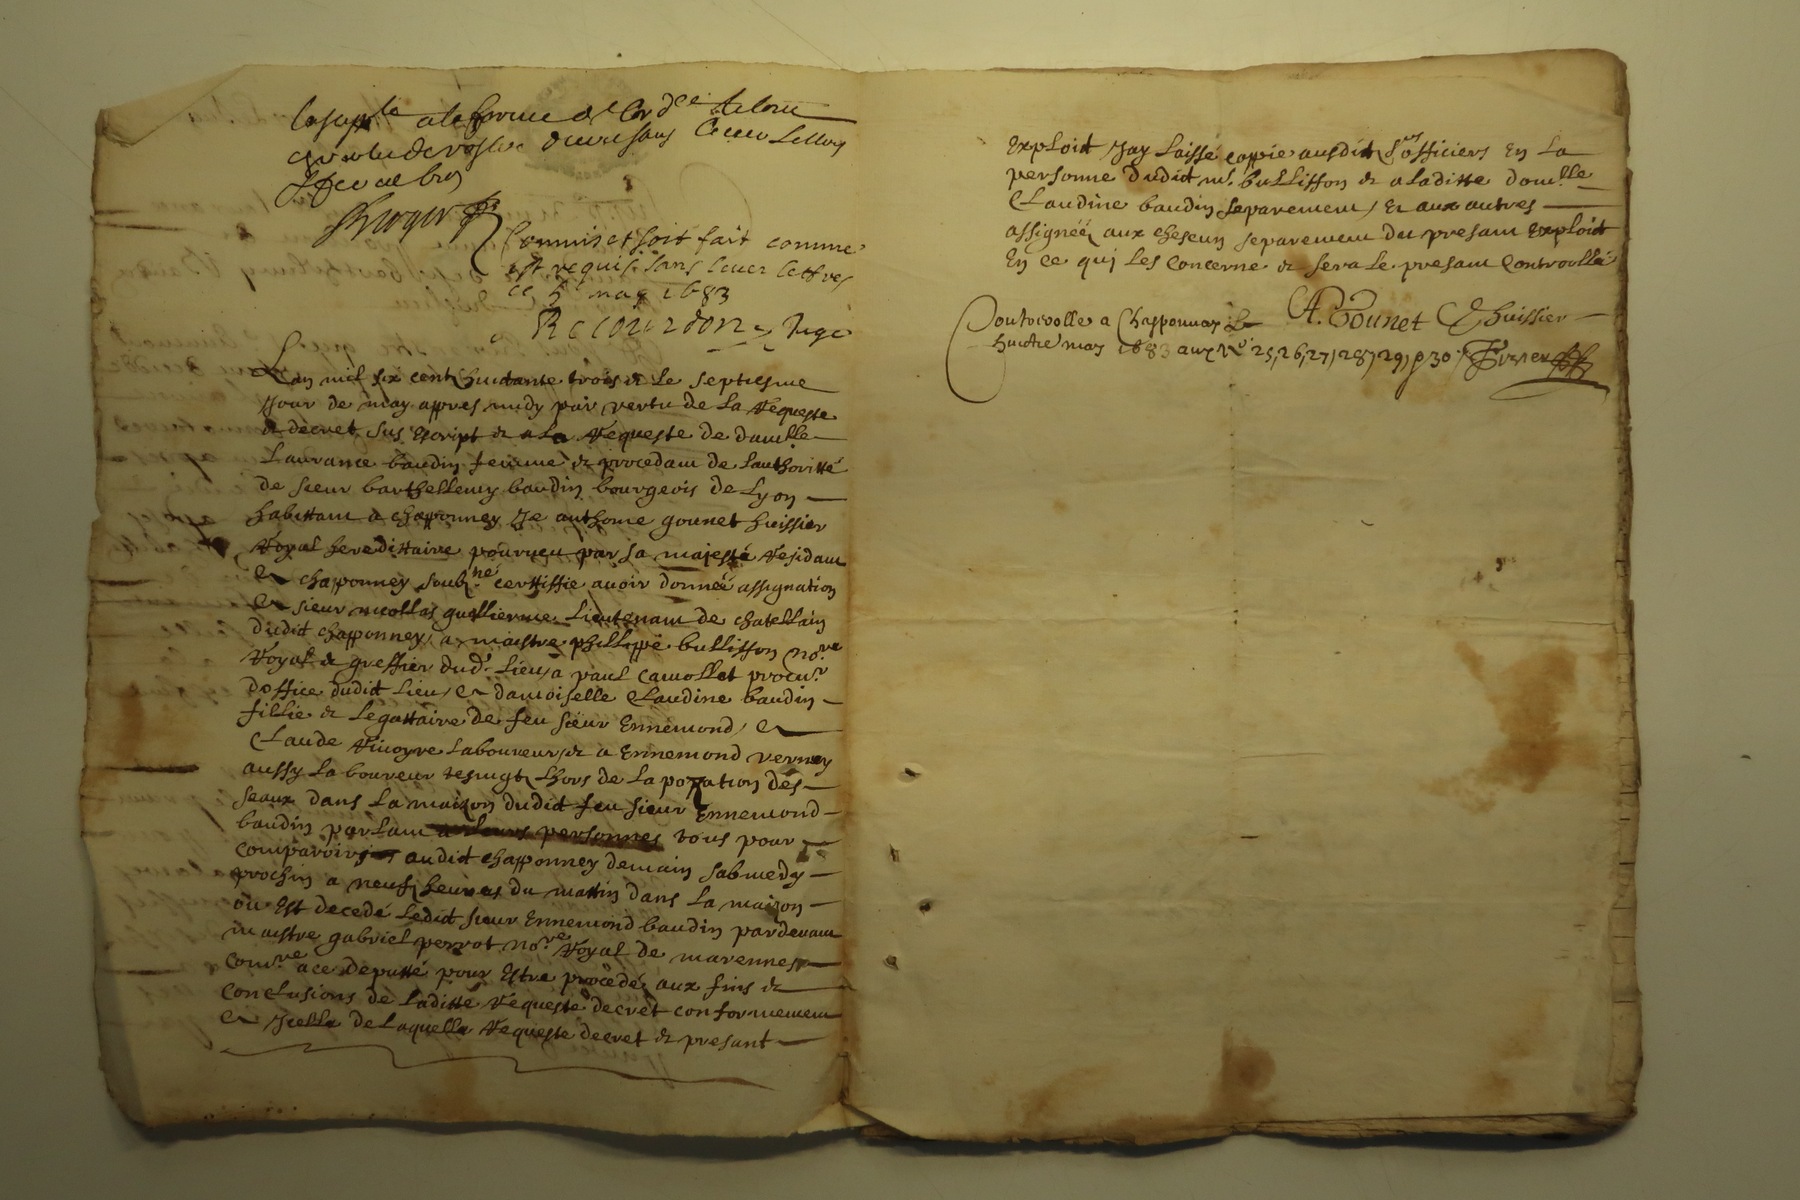 a la forme de l'ord.ce
et vertu de vostre decret sans lever Lettres
Commis et soit fait comme
est requis sans lever lettres
ce 5 may 1683
Recourdon Juge
L'an mil six cent huictante trois & le septiesme
jour de may appres midy par vertu de la Requeste
& decret sus Escript & a la Requeste de damlle
Laurance baudin femme & procedant de Lauthoritté
de sieur barthellemy baudin bourgeois de Lyon
habittant a chapponney Je anthoine gounet huissier
Royal hereditaire pourveu par sa majesté Residant
a chaponney soubz.né certiffie avoir donnéé assignation
a sieur nicollas guillierme Lieutenant de chatellain
dudit chapponney, a maistre philippe bullisson no.re
Royal & greffier dud.t Lieu, a paul camollet procu.r
doffice dudit Lieu, a damoiselle Claudine baudin
fillie & Legattaire de feu sieur Ennemond, a
Claude Rivoyre Laboureur, & a Ennemond verney
aussy Laboureur tesmgt Lhors de La pozation des
seaux dans La maizon dudit feu sieur Ennemond
baudin parlant a leurs personnes tous pour
comparoir audit chapponney demain sabmedy
prochin a neuf heures du mattin dans La maizon
ou Est decedé Ledit sieur Ennemond baudin pardevant
maistre gabriel perrot no.re Royal de marennes
com.re a ce deputté pour Estre procédé aux fins &
conclusions de Laditte Requeste decret conformement
a Jcelle de Laquelle Requeste decret & presant
Exploit Jay Laissé coppie ausdit S.rs officiers En La
personne dudit m.e bullisson & a laditte dam.lle
Claudine baudin separement, & aux autres
assignéé aux cheseun separement du presant Exploit
En ce qui Les concerne & sera Le presant controollé
A. Gounet huissier
Controolle a Chapponnay Le
huictie may 1683 aux N.o 25, 26, 27, 28, 29, & 30